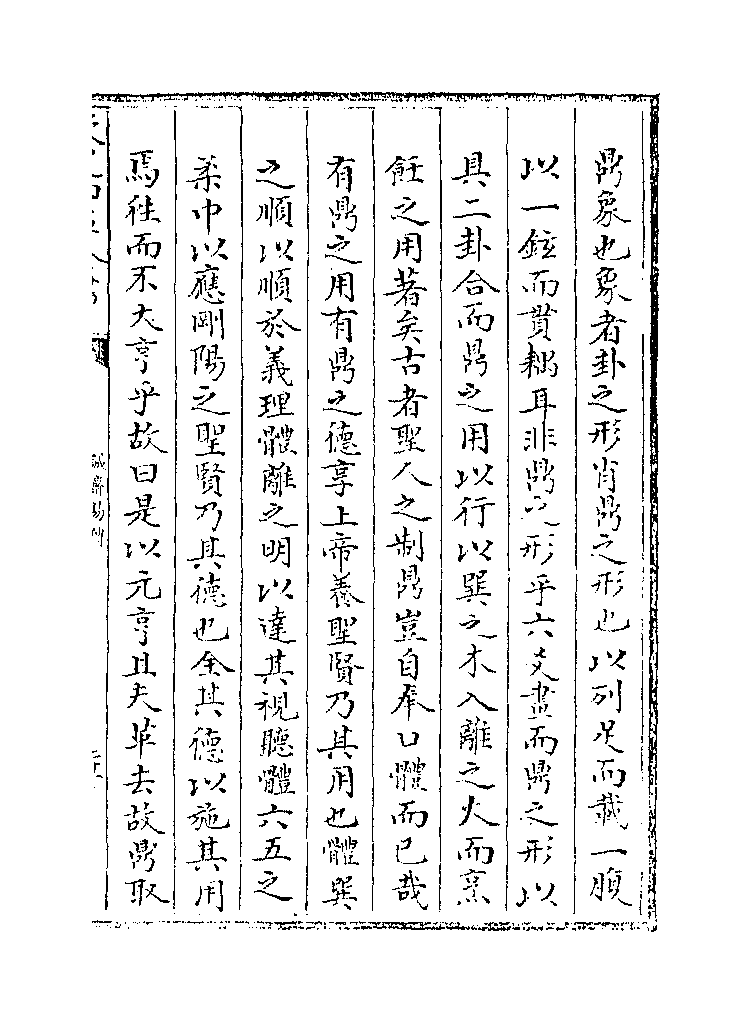 鼎象也象者卦之形肖鼎之形也以列足而載一腹
以一鉉而貫耦耳非鼎之形乎六爻畫而鼎之形以
具二卦合而鼎之用以行以巽之木入離之火而烹
飪之用著矣古者聖人之制鼎豈自奉口體而已哉
有鼎之用有鼎之德享上帝養聖賢乃其用也體巽
之順以順於義理體離之明以達其視聽體六五之
柔中以應剛陽之聖賢乃其德也全其德以施其用
焉往而不大亨乎故曰是以元亨且夫革去故鼎取
誠齋易傳